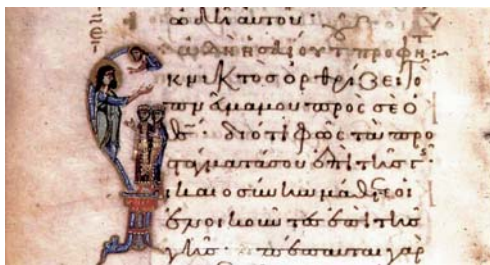 αὐτοῦ·
ὠδὴ ἠσαΐου τ προφητ
κ νυκτὸς ὀρθρίζει τὸ
πνα μου πρὸς σὲ ὁ
θς· διότι φῶς τὰ προ
σταγματά σου ἐπὶ τῆς γῆς
δικαιοσύνην μάθετε οἱ
ἐνοικοῦντες ἐπὶ τῆς
γῆς· πέπαυται γὰρ